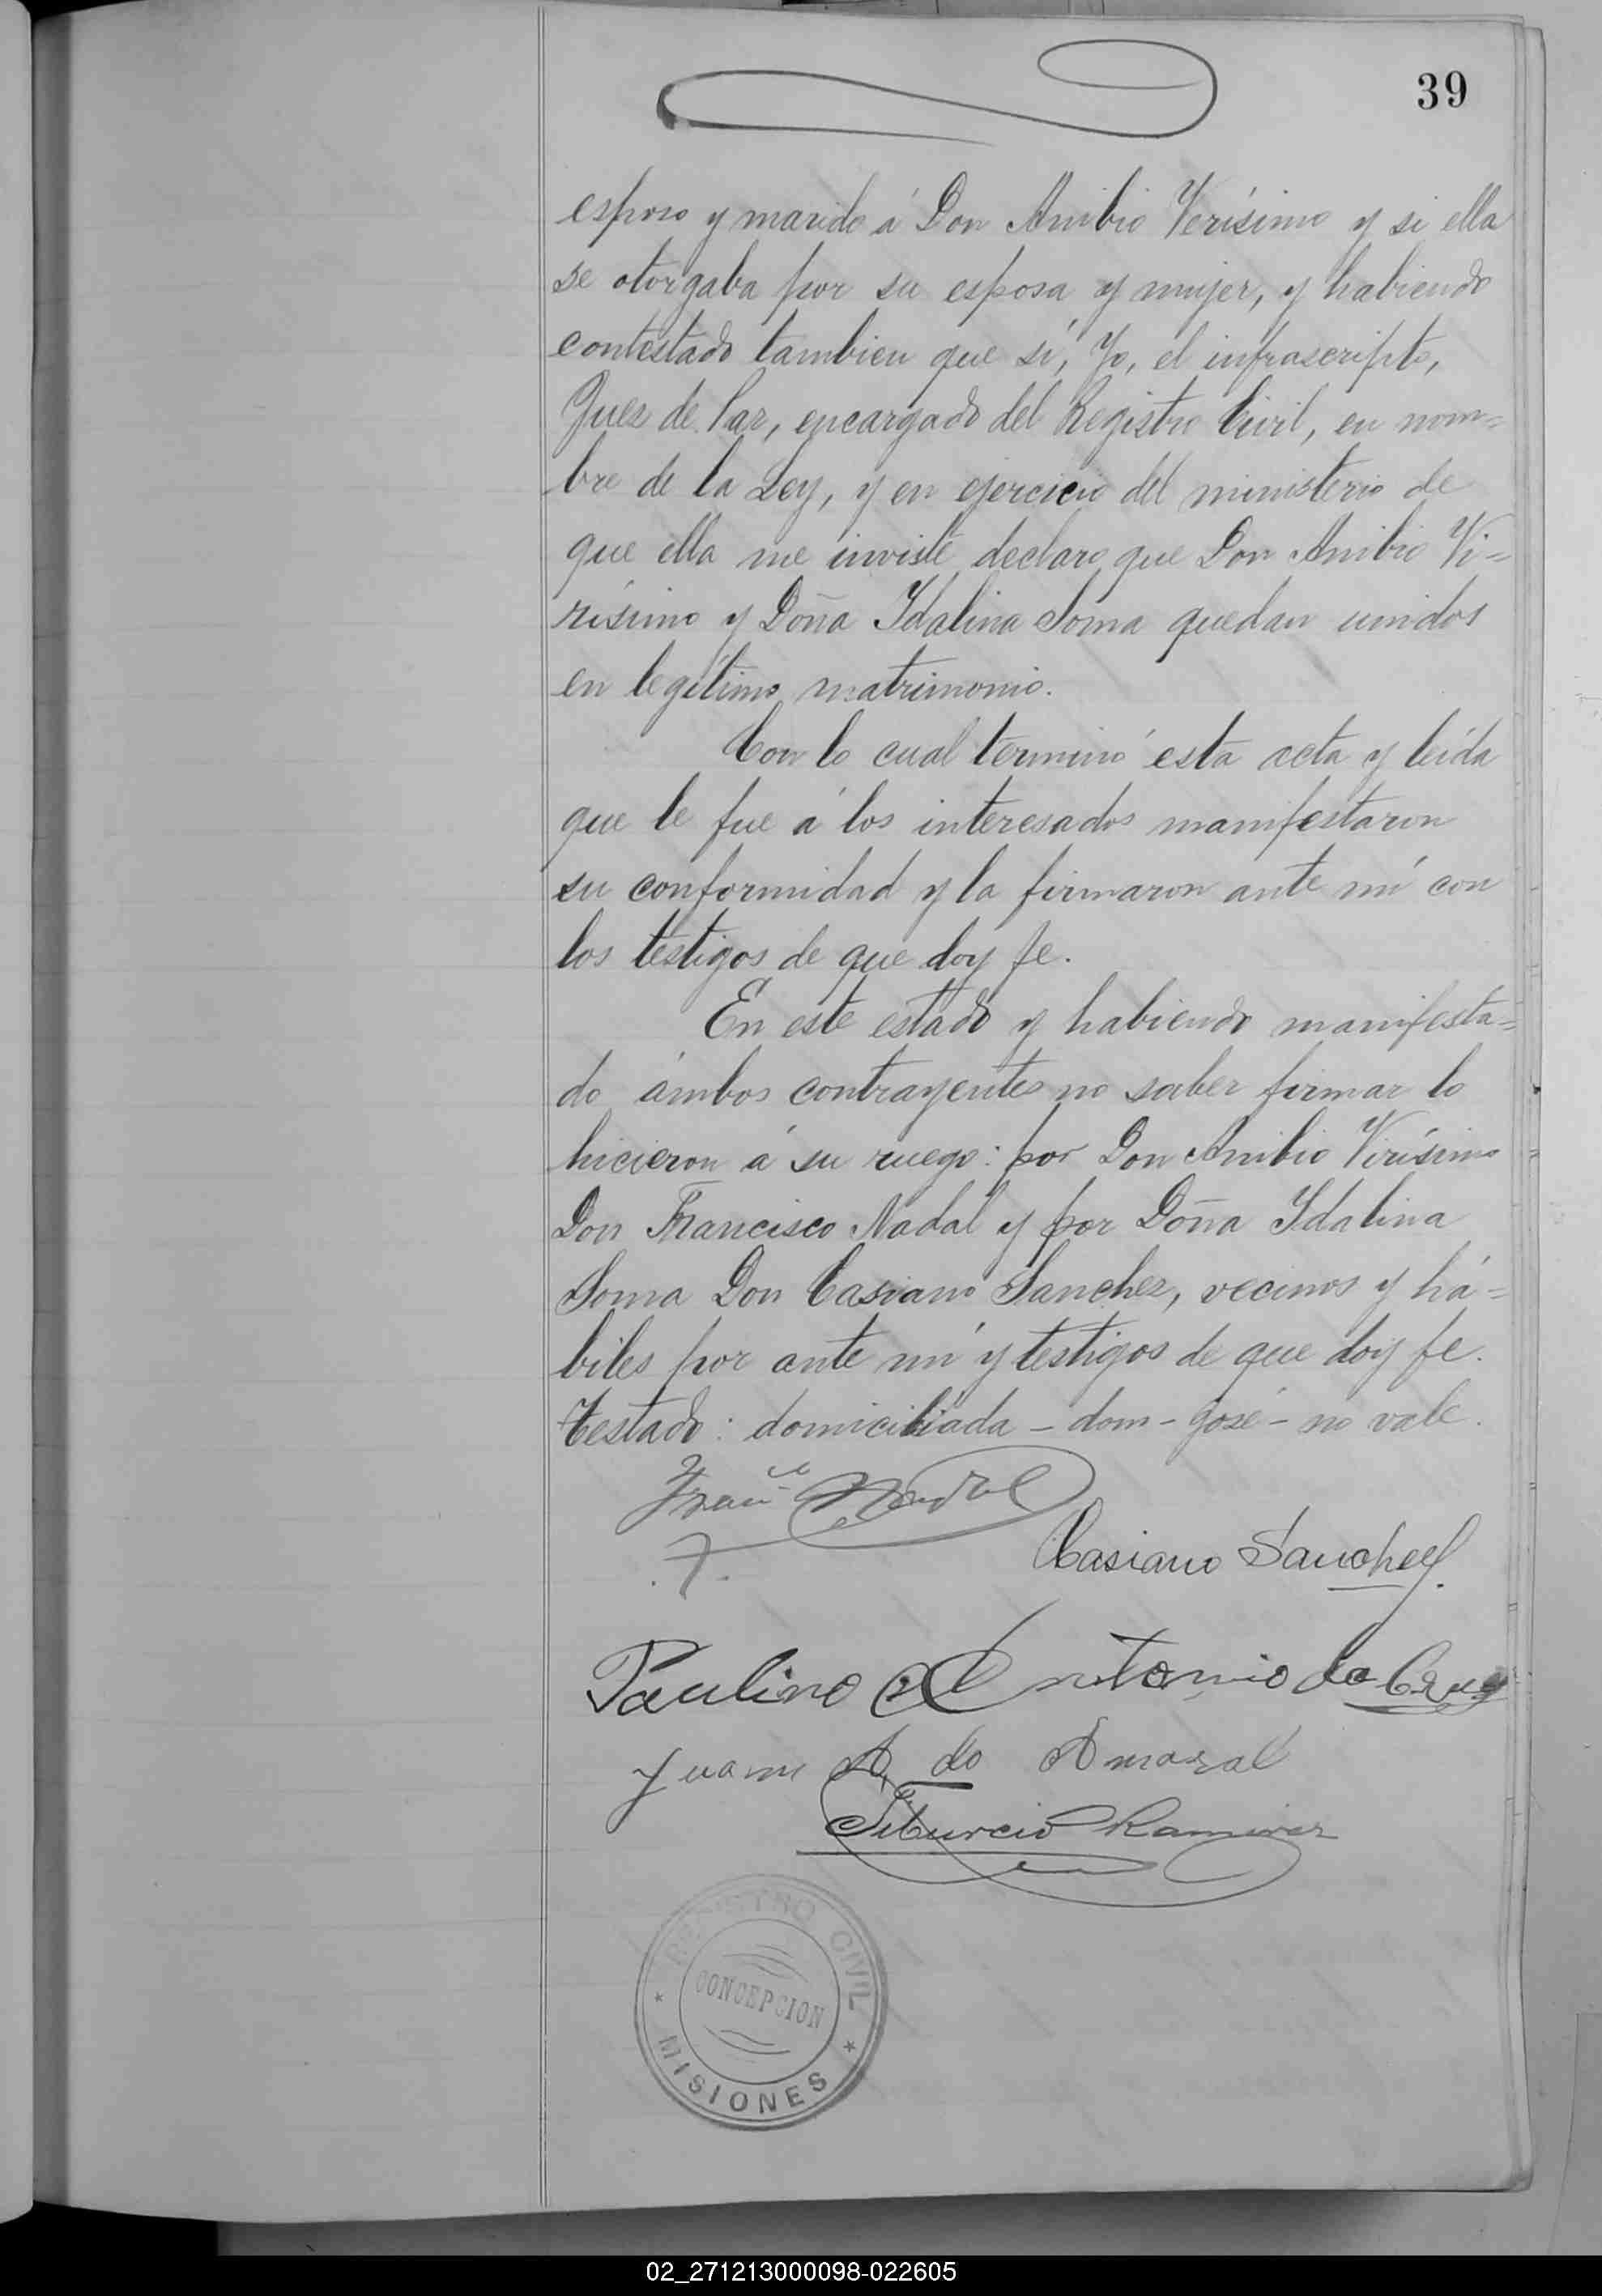 39
esposo y marido á Don Anibio Verísimo y si ella
se otorgaba por su esposa y mujer, y habiendo
contestado tambien que sí, Yo, el infrascripto,
Juez de Paz, encargado del Registro Civil, en nom=
bre de la Ley, y en ejercicio del ministerio de
que ella me inviste declaro que Don Anibio Vi=
rísimo y Doña Idalina Soma quedan unidos
en legítimo matrimonio.
Con lo cual terminó esta acta y leida
que le fue á los interesados manifestaron
su conformidad y la firmaron ante mí con
los testigos de que doy fe.
En este estado y habiendo manifesta=
do ámbos contrayentes no saber firmar lo
hicieron á su ruego: por Don Anibio Virísimo
Don Francisco Nadal y por Doña Idalina
Soma Don Casiano Sanchez, vecinos y há=
biles por ante mí y testigos de que doy fe.
Testado: domiciliada - dom - José - no vale.
Franco Nadal
Casiano Sanchez
Paulino Antonio da Cruz
Juan A. do Amaral
Tiburcio Ramirez
REGISTRO CIVIL
CONCEPCION
MISIONES
02_271213000098-022605